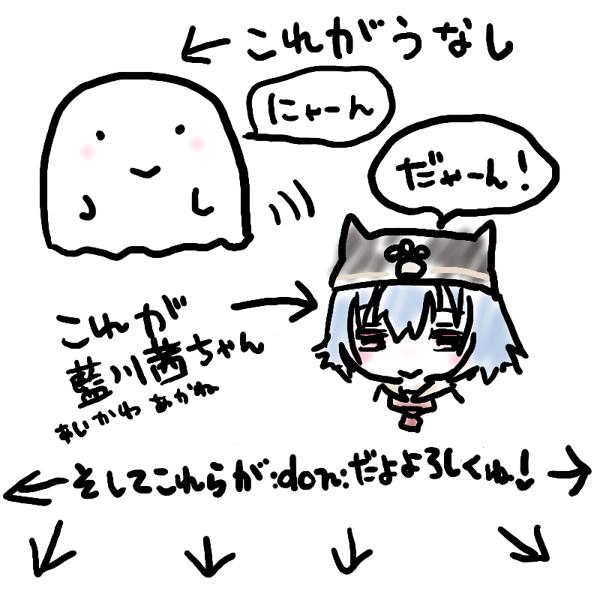 これがうなし
にゃーん
だゃーん!
これが
藍川茜ちゃん
あいかわ あかね
そしてこれらが:don:だよよろしくね!